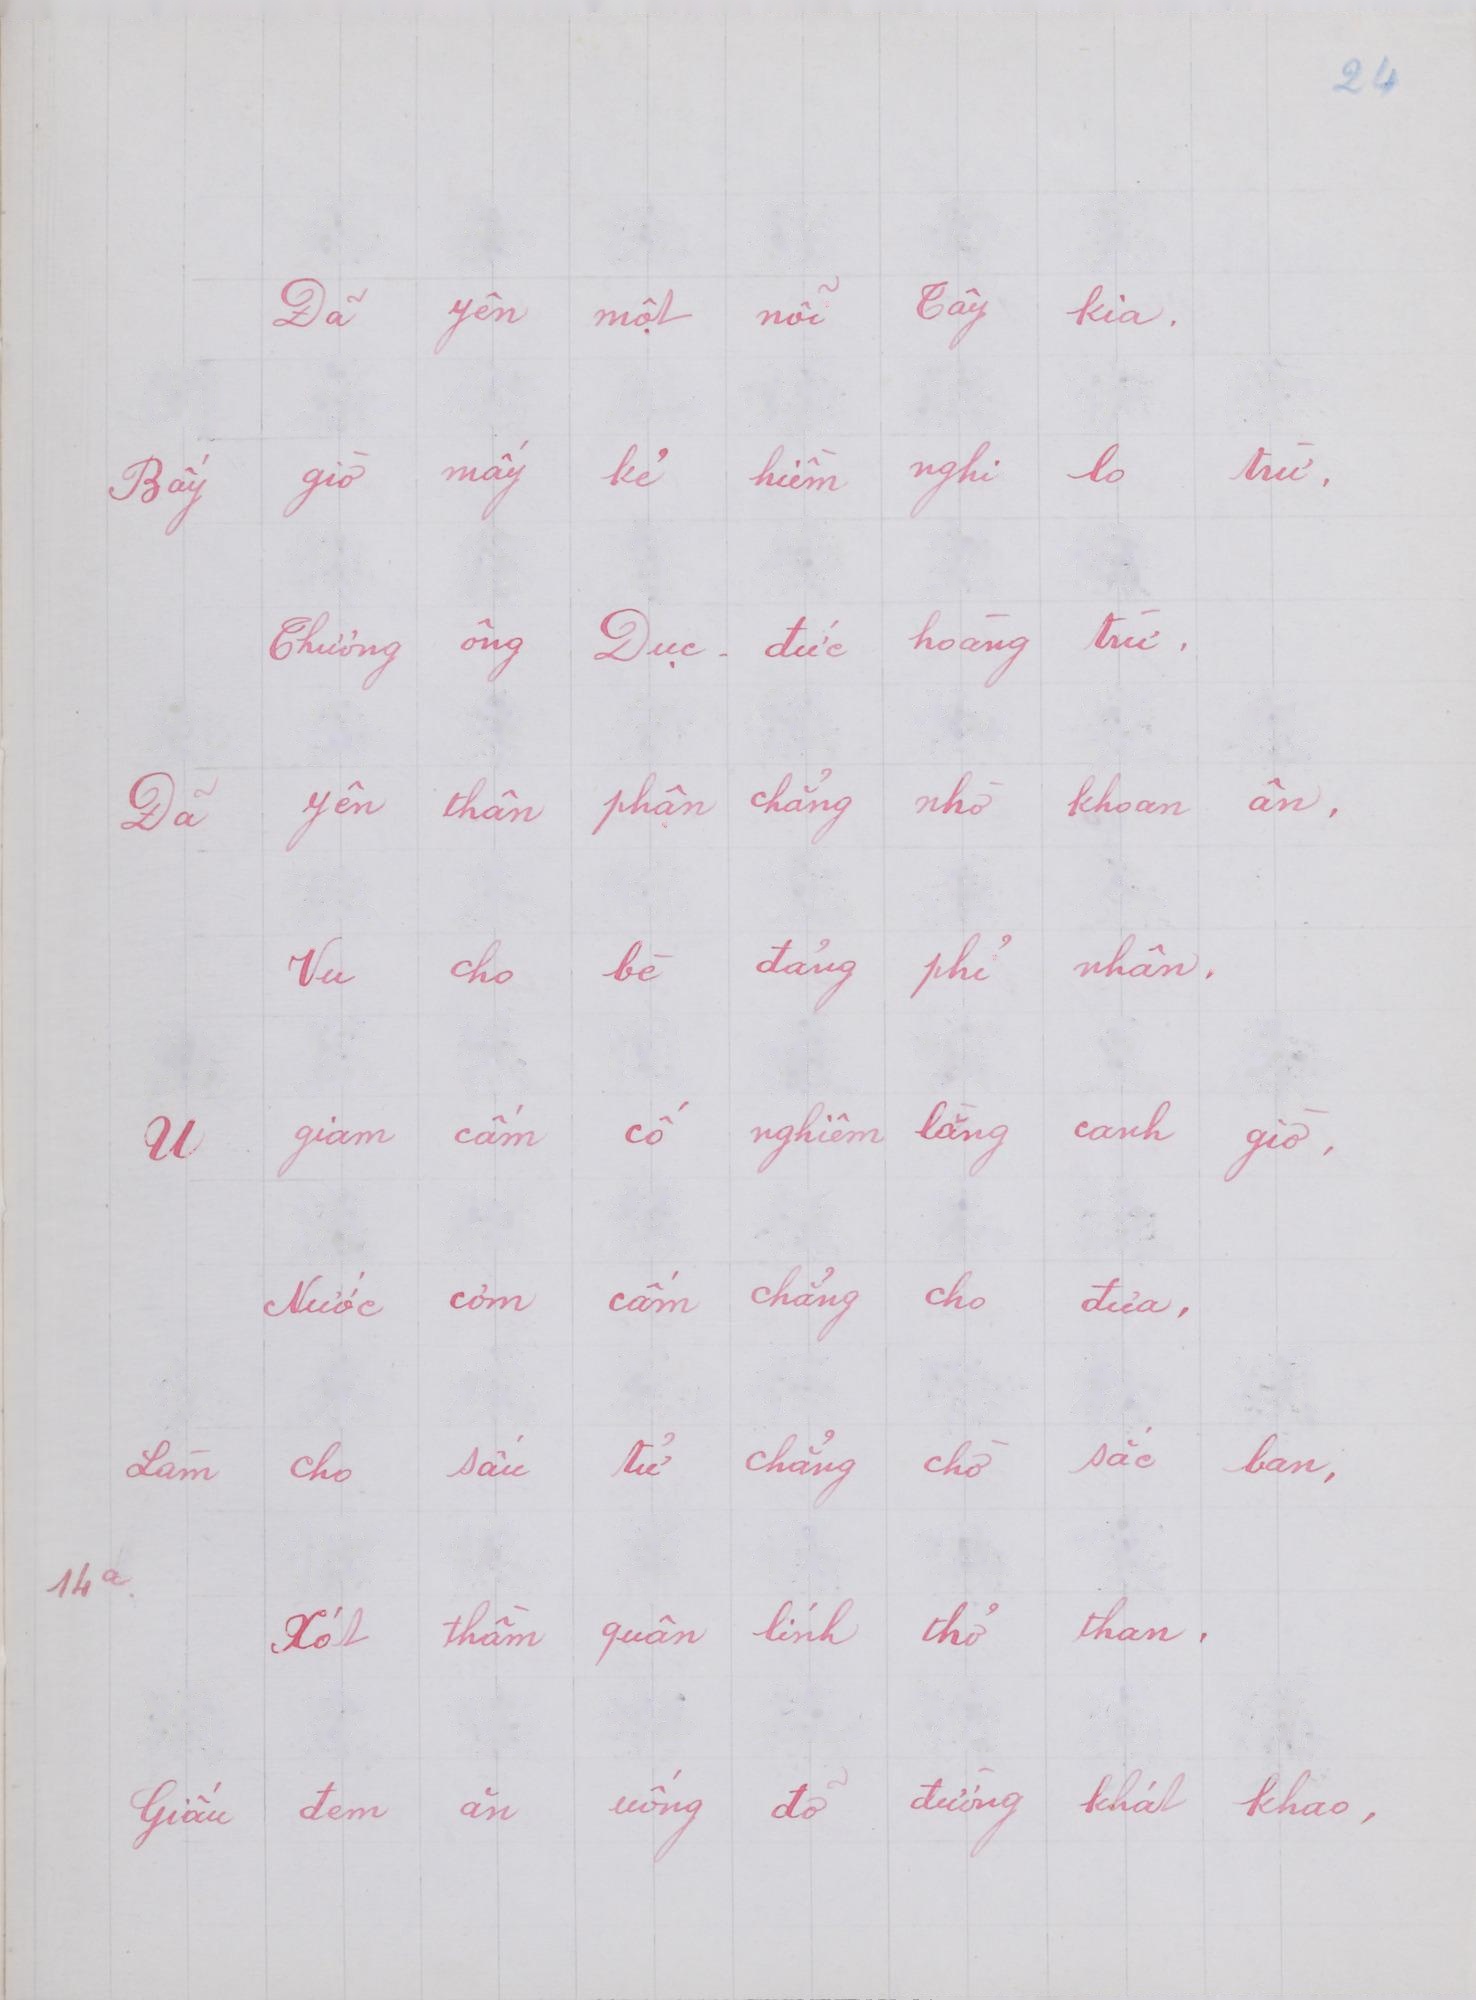 24
Đã yên một nỗi Tây kia.
Bấy giờ mấy kẻ hiềm nghi lo trừ,
Chưởng ông Dục-đức hoàng trừ.
Đã yên thân phận chẳng nhờ khoan ân,
Vu cho bè đảng phỉ nhân.
U giam cấm cố nghiêm lằng canh giờ,
Nước cơm cấm chẳng cho đưa,
Làm cho sấu tử chẳng chờ sắc ban,
14a.
Xót thầm quân lính thở than.
Giấu đem ăn uống đỡ đường khát khao,